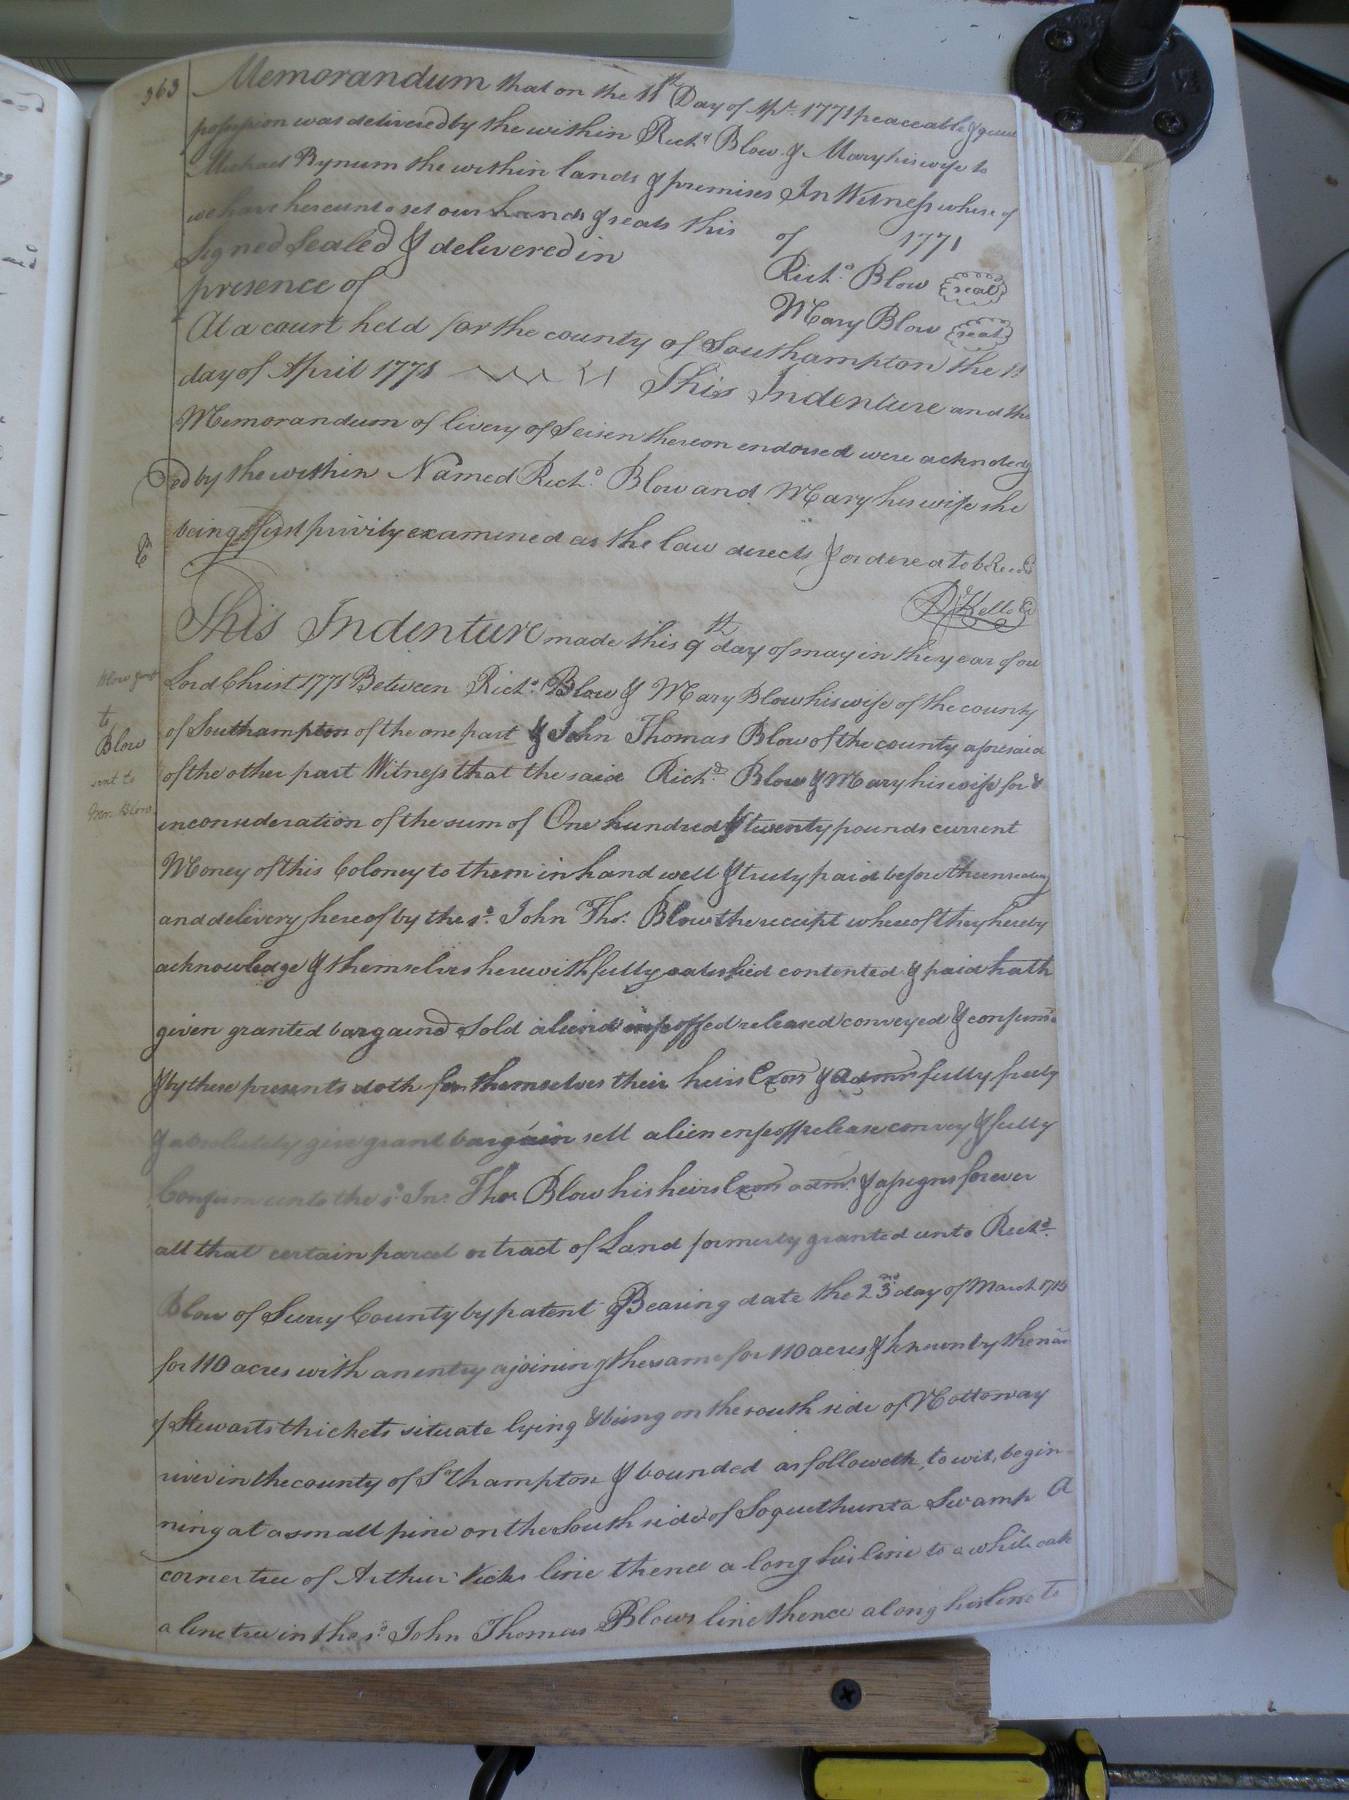 363 Memorandum that on the 11th Day of Apr. 1771 peaceable & quiet
possession was delivered by the within Richd Blow & Mary his wife to
Michael Bynum the within lands & premises In Witness whereof
we have hereunto set our hands & seals this of 1771
Signed Sealed & delivered in Richd. Blow seal
presence of Mary Blow seal
At a court held for the county of Southampton the 11
day of April 1771 This Indenture and the
Memorandum of livery of Seisen thereon endorsed were acknoledg
ed by the within Named Richd. Blow and Mary his wife she
being first privily examined as the law directs & ordered to be
Ex
This Indenture made this 9th day of may in the year of our
Lord Christ 1771 Between Richd. Blow & Mary Blow his wife of the county
of Southampton of the one part & John Thomas Blow of the county aforesaid
of the other part Witness that the said Richd. Blow & Mary his wife for &
inconsideration of the sum of One hundred & twenty pounds current
Money of this Coloney to them in hand well & truly paid before the ensealing
and delivery hereof by the sd. John Thos. Blow the receipt whereof they hereby
acknowledge & themselves herewith fully satisfied contented & paid hath
given granted bargained Sold aliend enfeoffed released conveyed & confirm'd
& by these presents doth for themselves their heirs Exors & admrs fully freely
& absolutely give grant bargain sell alien enfeoff release convey & fully
Confirm unto the sd. Jno. Thos. Blow his heirs Exors admrs. & assigns forever
all that certain parcel or tract of Land formerly granted unto Richd.
Blow of Surry County by patent Bearing date the 23rd day of March 1715
for 110 acres with an entry ajoining the same for 110 acres & known by the name
of Stewarts thickets situate lying & being on the south side of Nottoway
river in the county of Sthampton & bounded as followeth, to wit, begin
ning at a small pine on the South side of Soquethunta Swamp A
corner tree of Arthur Vicks line thence a long his line to a white oak
a line tree in the sd. John Thomas Blows line thence along his line to
Blow
to
Blow
sent to
Blow